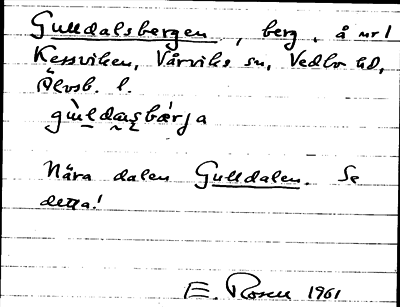 Gulldalsbergen, berg, å nr 1
Kessviken, Vårviks sn, Vedbo hd,
Älvsb. l.
gùldasbærja
Nära dalen Gulldalen. Se
detta!
E. Rosell 1961